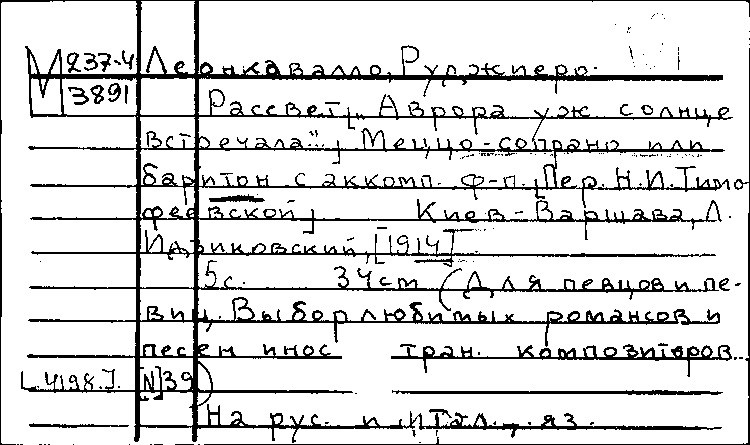 М 237-4 Леонкавалло, Руджиеро.
3891
Рассвет[„Аврора уж солнце
встречала"..] Меццо-сопрано или
баритон с аккомп. ф-п. [Пер. Н.И. Тимо
феевской] Киев-Варшава, Л.
Идзиковский, [1914]
5с. 34cm (Для певцов и пе-
виц. Выбор любимых романсов и
песен иностран. композиторов...
[N]39)
[..4198.]
На рус. и итал. яз.